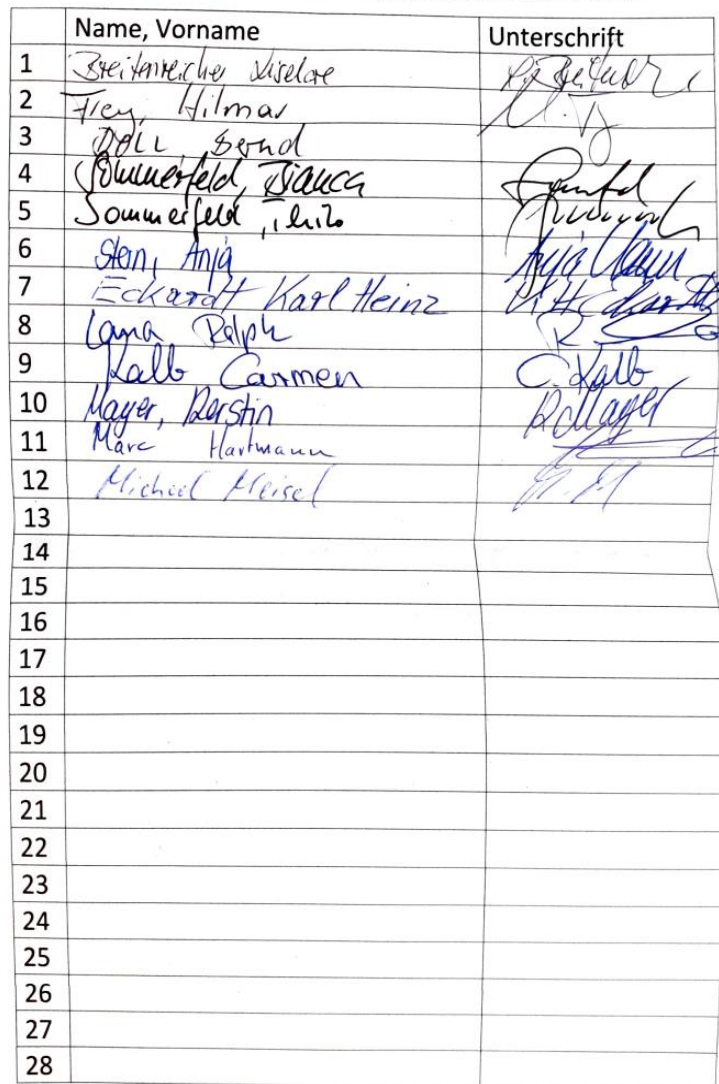 Name, Vorname Unterschrift
1 Breitenreicher Liselore
2 Frey, Hilmar
3 DOLL Bernd
4 Sommerfeld, Bianca
5 Sommerfeld, Thilo
6 Stein, Anja Anja
7 Eckardt Karl Heinz K.H. Eckardt
8 Ralph R
9 Kalb Carmen C. Kalb
10 Mayer, Kerstin K Mayer
11 Marc Hartmann
12 Michael Meisel
13
14
15
16
17
18
19
20
21
22
23
24
25
26
27
28